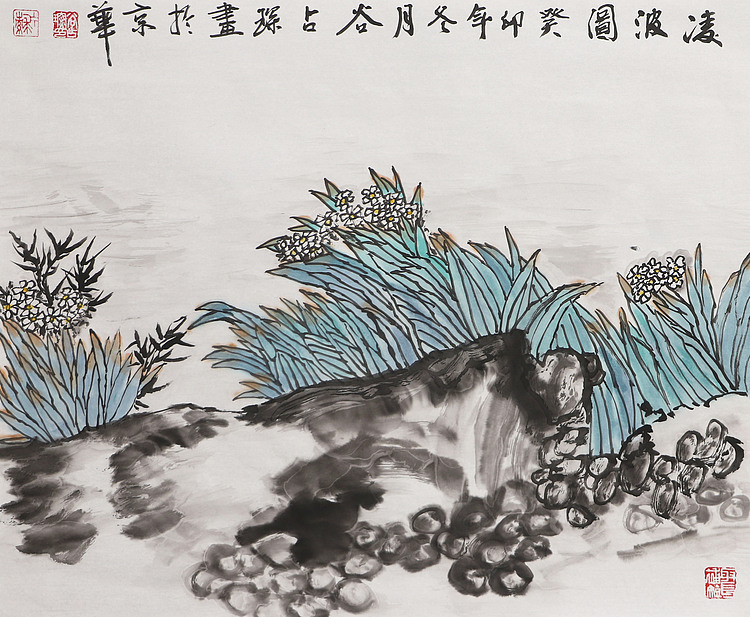 凌波圖癸卯年冬月谷占琛畫於京華